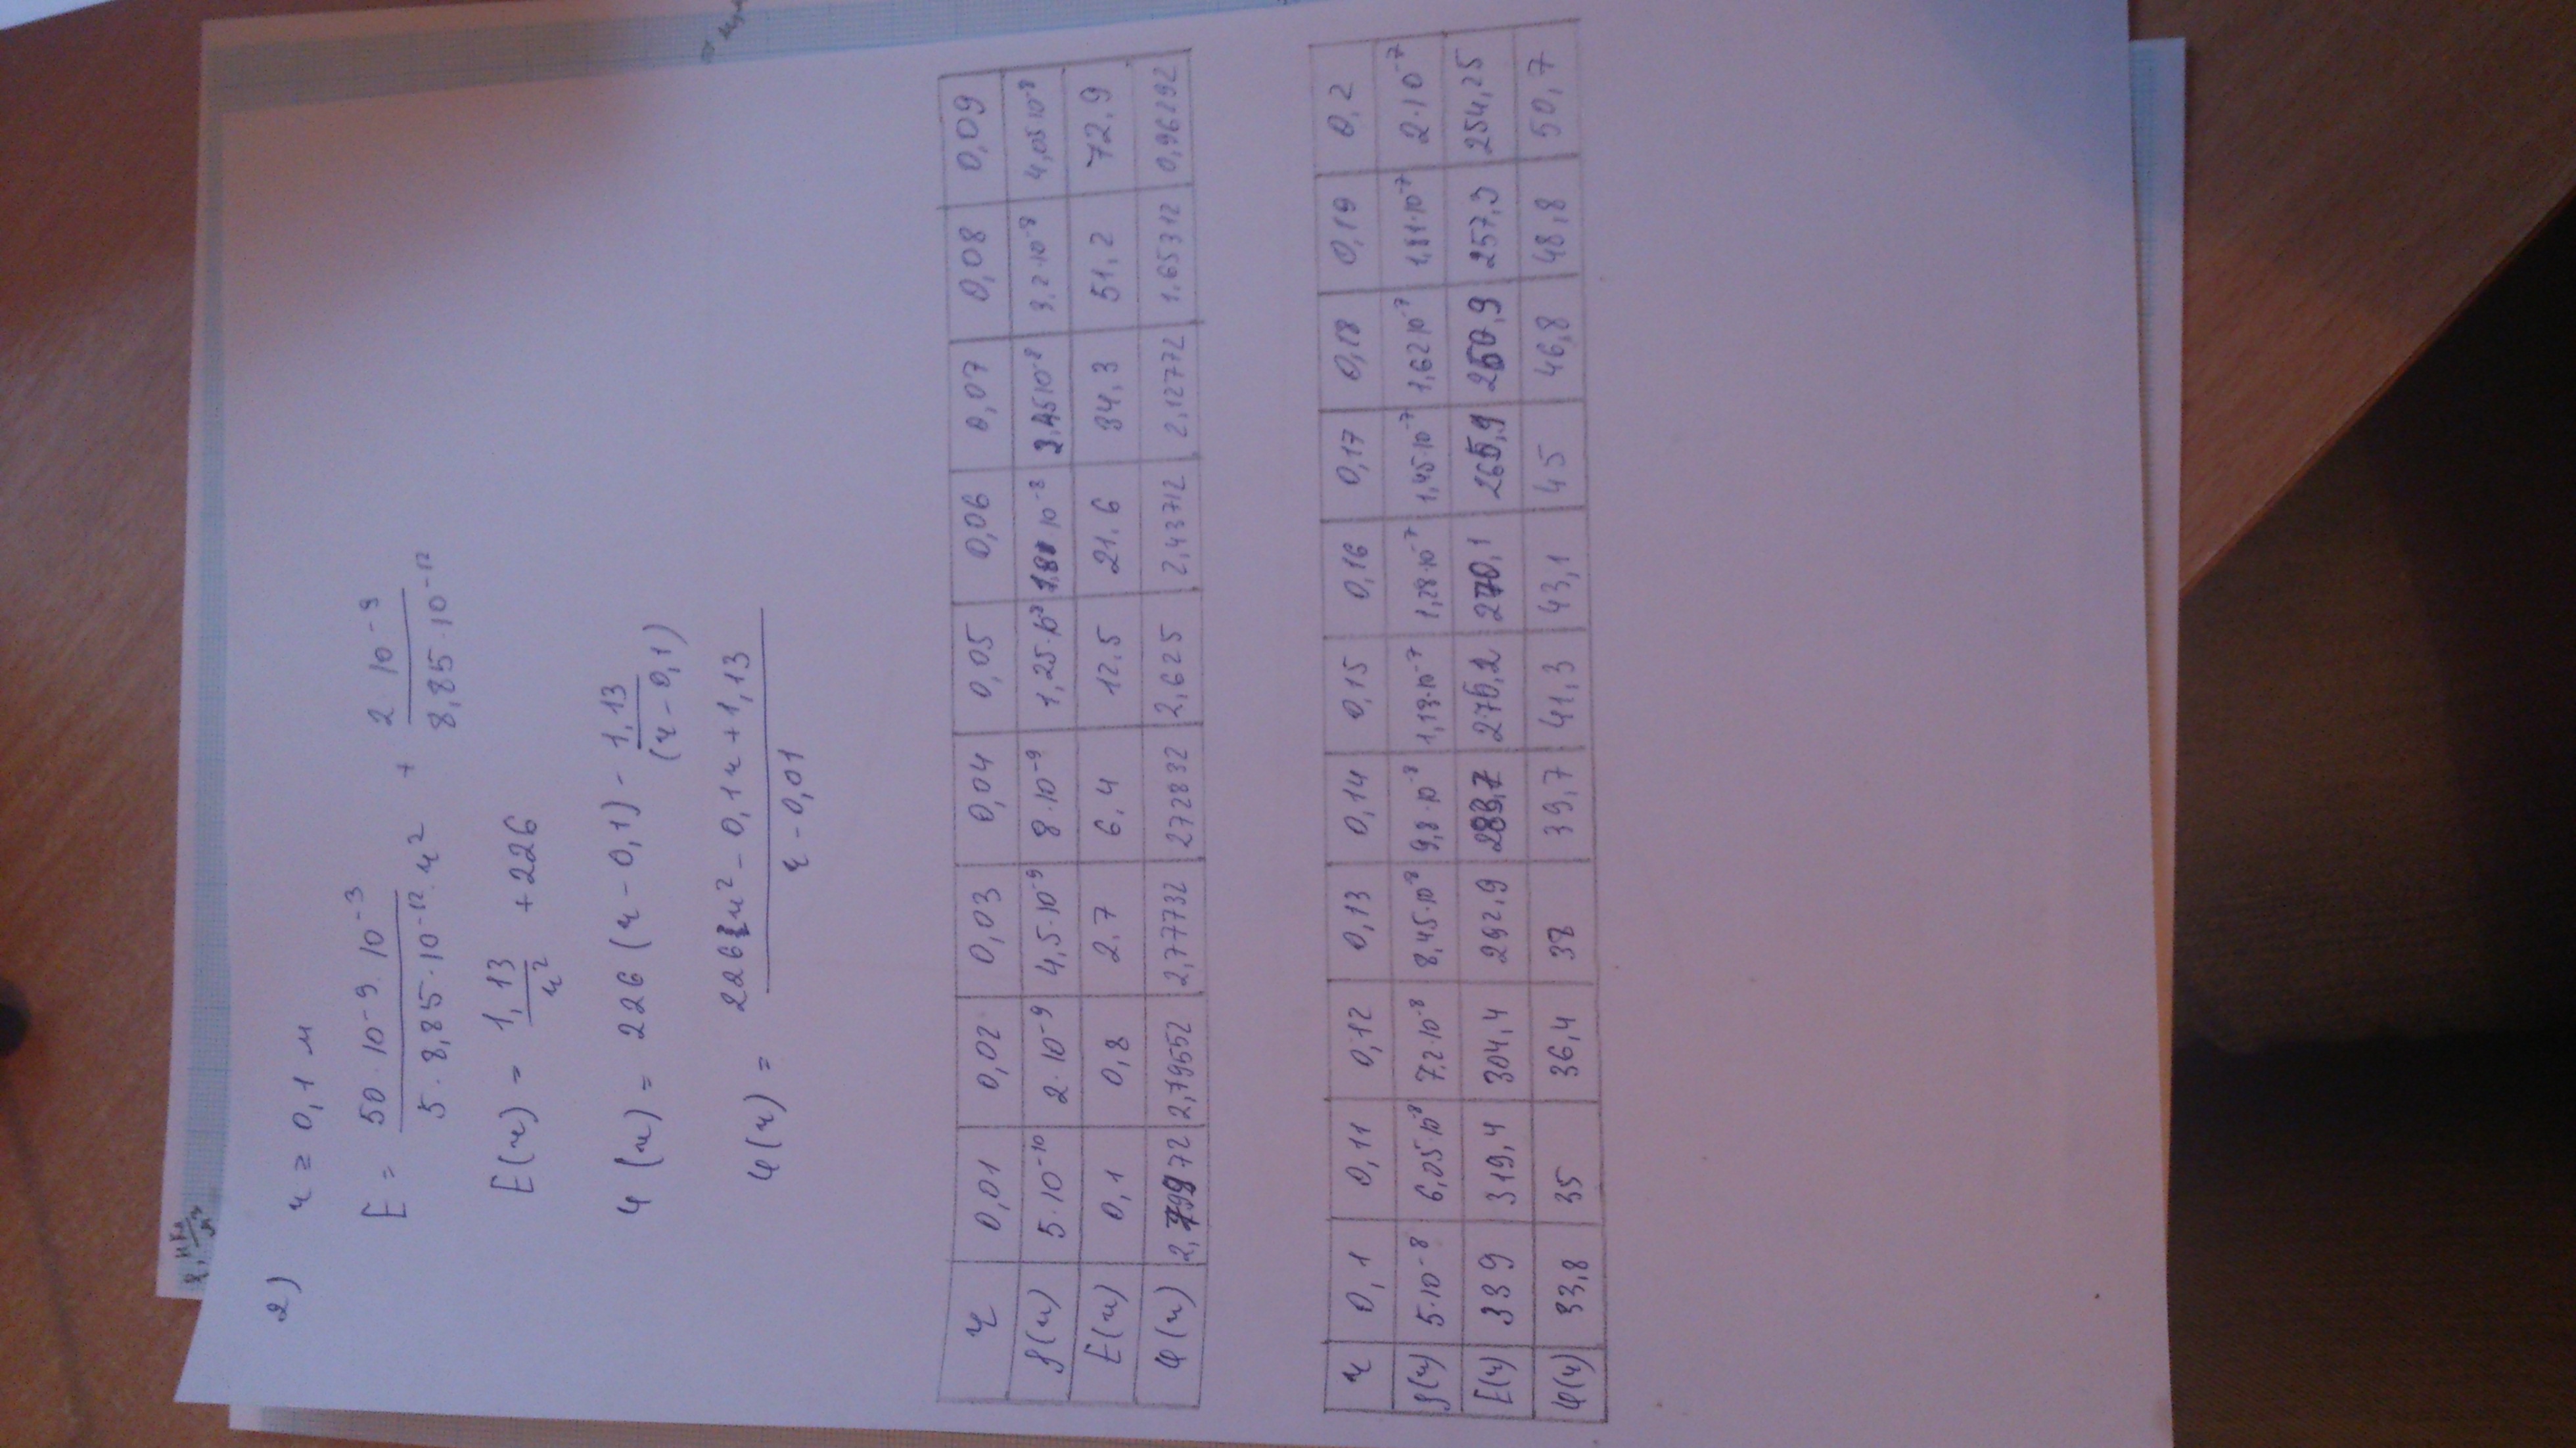 ρ, нКл/м³
2) r ≥ 0,1 м
E = (50·10⁻⁹·10⁻³)/(5·8,85·10⁻¹²·r²) + (2·10⁻⁹)/(8,85·10⁻¹²)
E(r) = 1,13/r² + 226
φ(r) = 226(r-0,1) - 1,13/(r-0,1)
φ(r) = (226r²-0,1r+1,13)/(r-0,01)
r 0,01 0,02 0,03 0,04 0,05 0,06 0,07 0,08 0,09
ρ(r) 5·10⁻¹⁰ 2·10⁻⁹ 4,5·10⁻⁹ 8·10⁻⁹ 1,25·10⁻⁸ 1,81·10⁻⁸ 2,45·10⁻⁸ 3,2·10⁻⁸ 4,05·10⁻⁸
E(r) 0,1 0,8 2.7 6,4 12.5 21.6 34.3 51.2 72.9
φ(r) 2,79972 2,79552 2,77732 272832 2,625 2,43712 2,12772 1.65312 0,96292
r 0,1 0,11 0,12 0,13 0,14 0,15 0,16 0,17 0,18 0,19 0,2
ρ(r) 5·10⁻⁸ 6,05·10⁻⁸ 7,2·10⁻⁸ 8,45·10⁻⁸ 9,8·10⁻⁸ 1,13·10⁻⁷ 1,28·10⁻⁷ 1,45·10⁻⁷ 1,62·10⁻⁷ 1,81·10⁻⁷ 2·10⁻⁷
E(r) 339 319,4 304,4 292,9 283,7 276,2 270,1 265,1 260,9 257,3 254,25
φ(r) 33,8 35 36,4 38 39,7 41,3 43,1 45 46,8 48,8 50,7